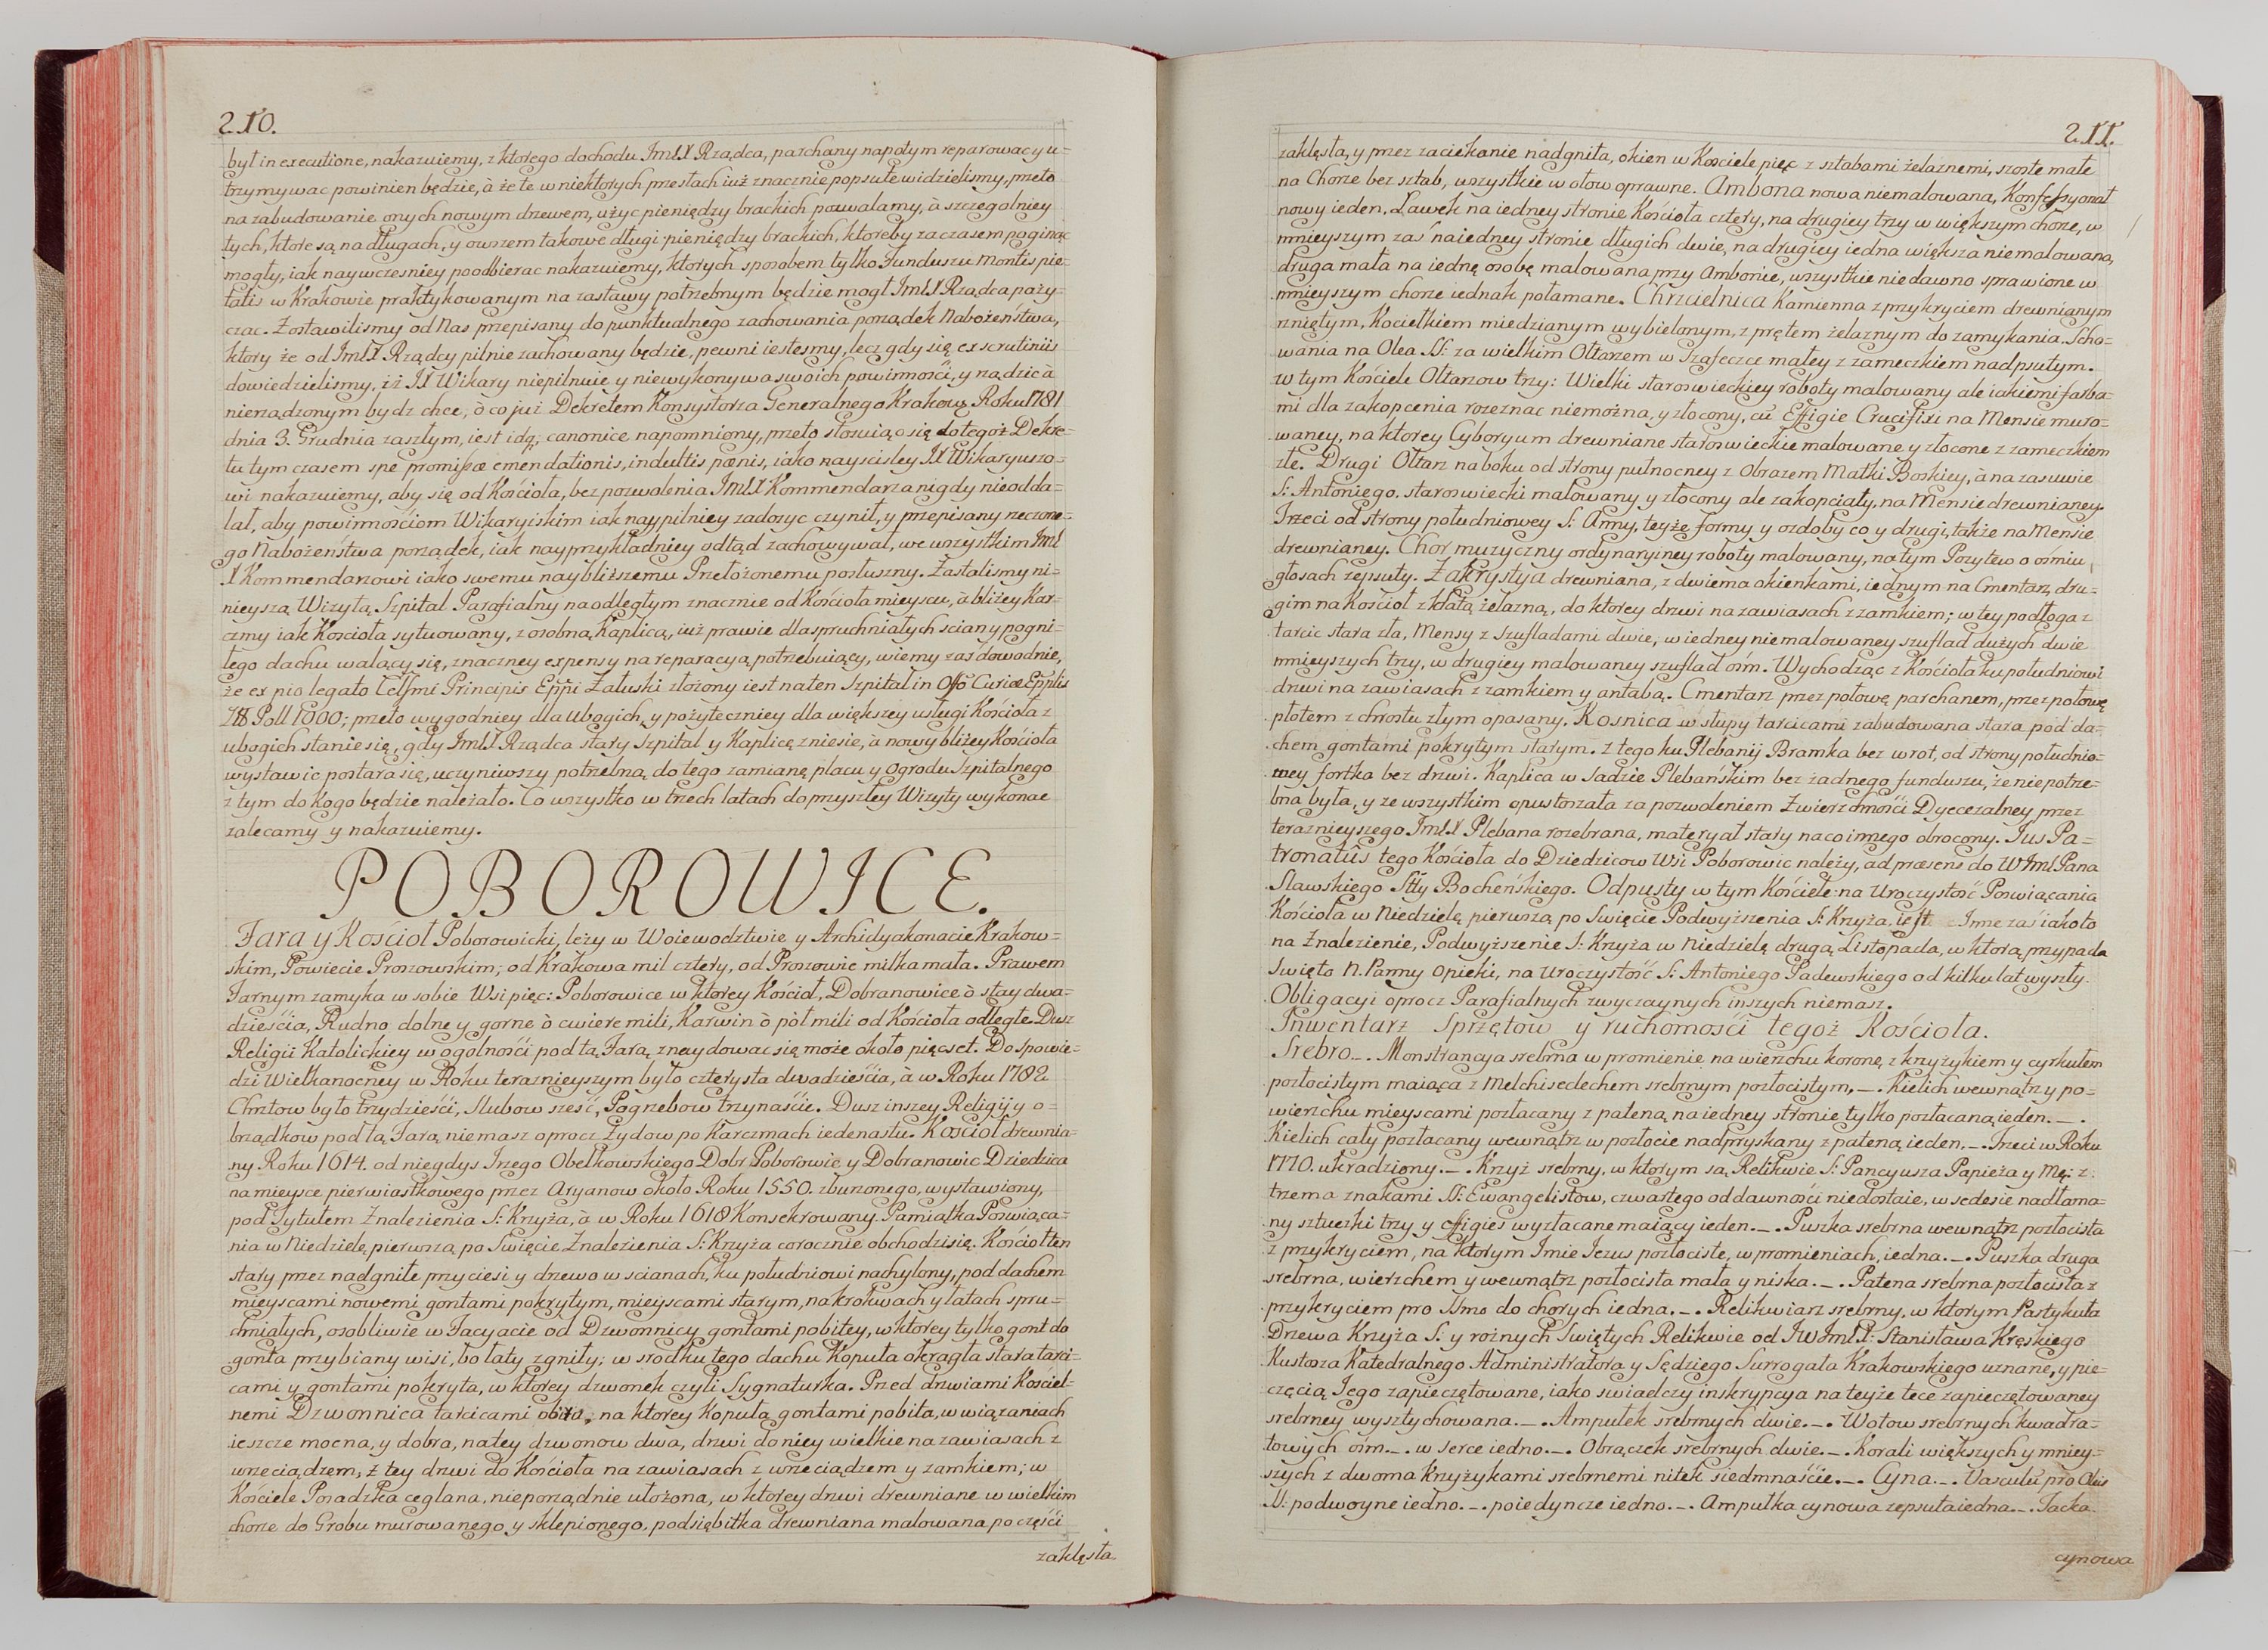 210.
był in executione, nakazuiemy, z ktorego dochodu JmćX Rządca, parchany napotym reparowac y u=
trzymywac powinien będzie, à że te w niektorych przesłach iuż znacznie popsute widzielismy, przeto
na zabudowanie onych nowym drzewem, użyc pieniędzy brackich pozwalamy, à szczegolniey
tych, ktore są na długach, y owszem takowe długi pieniędzy brackich, ktoreby za czasem poginąc
mogły, iak naywczesniey poodbierac nakazuiemy, ktorych sposobem tylko Funduszu Montis pie=
tatis w Krakowie praktykowanym na zastawy potrzebnym będzie mogł JmćX Rządca poży=
czac. Zostawilismy od Nas przepisany do punktualnego zachowania porządek Nabożeństwa,
ktory że od JmćX Rządcy pilnie zachowany będzie, pewni iestesmy, lecz gdy się ex scrutiniis
dowiedzielismy, iż JX Wikary niepilnuie y niewykonywa swoich powinności, y rządzic à
nierządzonym bydz chce, ò co już Dekretem Konsystorza Generalnego Krakow: Roku 1781
dnia 3. Grudnia zaszłym, iest idq; canonice napomniony, przeto stosuiąc się do tegoż Dekre=
tu tym czasem spe promissæ emendationis, indultis pœnis, iako nayscisley JX Wikaryuszo=
wi nakazuiemy, aby się od Kościoła, bez pozwolenia JmćX Kommendarza nigdy nieodda=
lał, aby powinnościom Wikaryiskim iak naypilniey zadozyc czynił, y przepisany rzeczone=
go Nabożeństwa porządek, iak nayprzykładniey odtąd zachowywał, we wszystkim Jmć
X Kommendarzowi iako swemu naybliższemu Przełożonemu posłuszny. Zastalismy ni=
nieyszą Wizytą Szpital Parafialny na odległym znacznie od Kościoła mieyscu, à bliżey Kar=
czmy iak Kościoła sytuowany, z osobną Kaplicą, iuż prawie dla spruchniałych sciany pogni=
łego dachu walący się, znaczney expensy na reparacyą potrzebuiący, wiemy zas dowodnie,
że ex pio legato Celsmi Principis Eppi Załuski złożony iest na ten Szpital in Offo Curiæ Epplis
Złł Poll 1000; przeto wygodniey dla Ubogich, y pożyteczniey dla większey usługi Kościoła z
ubogich stanie się, gdy JmćX Rządca stary Szpital y Kaplicę zniesie, à nowy bliżey Kościoła
wystawic postara się, uczyniwszy potrzebną do tego zamianę placu y Ogrodu Szpitalnego
z tym do kogo będzie należało. Co wszystko w trzech latach do przyszłey Wizyty wykonac
zalecamy y nakazuiemy.
POBOROWICE.
Fara y Kościoł Poborowicki, leży w Woiewodztwie y Archidyakonacie Krakow=
skim, Powiecie Proszowskim; od Krakowa mil cztery, od Proszowic milka mała. Prawem
Farnym zamyka w sobie Wsi pięc: Poborowice w ktorey Kościoł, Dobranowice ò stay dwa=
dzieścia, Rudno dolne y gorne ò cwierc mili, Karwin ò pòł mili od Kościoła odległe. Dusz
Religii Katolickiey w ogolności pod tą Farą znaydowac się może około pięcset. Do spowie=
dzi Wielkanocney w Roku teraznieyszym było czterysta dwadzieścia, à w Roku 1782
Chrztow było trzydzieści, slubow szesć, Pogrzebow trzynaście. Dusz inszey Religij y o=
brządkow pod tą Farą niemasz oprocz Żydow po Karczmach iedenastu. Kościoł drewnia=
ny Roku 1614. od niegdys Jrzego Obelkowskiego Dobr Poborowic y Dobranowic Dziedzica
na mieysce pierwiastkowego przez Aryanow około Roku 1550. zburzonego, wystawiony,
pod Tytułem Znalezienia S: Krzyża, à w Roku 1618 Konsekrowany. Pamiątka Poswiąca=
nia w Niedzielę pierwszą po Swięcie Znalezienia S: Krzyża corocznie obchodzi się. Kościoł ten
stary przez nadgniłe przyciesi y drzewo w scianach, ku południowi nachylony, pod dachem
mieyscami nowemi gontami pokrytym, mieyscami starym, na krokwach y łatach spru=
chniałych, osobliwie w Facyacie od Dzwonnicy gontami pobitey, w ktorey tylko gont do
gonta przybiany wisi, bo łaty zgniły; w srodku tego dachu Kopuła okrągła stara tarci=
cami y gontami pokryta, w ktorey dzwonek czyli Sygnaturka. Przed drzwiami Kosciel=
nemi Dzwonnica tarcicami obita, na ktorey kopuła gontami pobita, w wiązaniach
ieszcze mocna, y dobra, na tey dzwonow dwa, drzwi do niey wielkie na zawiasach z
wrzeciądzem; z tey drzwi do Kościoła na zawiasach z wrzeciądzem y zamkiem; w
Kościele Posadzka ceglana, nieporządnie ułożona, w ktorey drzwi drewniane w wielkim
chorze do Grobu murowanego y sklepionego, podsiębitka drewniana malowana po części
zaklęsła
211.
zaklęsła, y przez zaciekanie nadgniła, okien w Kosciele pięc z sztabami żelaznemi, szoste małe
na Chorze bez sztab, wszystkie w ołow oprawne. Ambona nowa niemalowana, Konfessyonał
nowy ieden. Ławek na iedney stronie Kościoła cztery, na drugiey trzy w większym chorze, w
mnieyszym zas na iedney stronie długich dwie, na drugiey iedna większa niemalowana,
druga mała na iednę osobę malowana przy Ambonie, wszystkie niedawno sprawione w
mnieyszym chorze iednak połamane. Chrzcielnica Kamienna z przykryciem drewnianym
rzniętym, Kociełkiem miedzianym wybielonym, z prętem żelaznym do zamykania. Scho=
wania na Olea SS: za wielkim Ołtarzem w Szafeczce małey z zameczkiem nadpsutym.
W tym Kościele Ołtarzow trzy: Wielki staroswieckiey roboty malowany ale iakiemi farba=
mi dla zakopcenia rozeznac niemożna, y złocony, cũ Effigie Crucifixi na Mensie muro=
waney, na ktorey Cyboryum drewniane staroswieckie malowane y złocone z zameczkiem
złe. Drugi Ołtarz na boku od strony pułnocney z Obrazem Matki Boskiey, à na zasuwie
S: Antoniego, staroswiecki malowany y złocony ale zakopciały, na Mensie drewnianey.
Trzeci od strony południowey S: Anny, teyżę formy y ozdoby co y drugi, także na Mensie
drewnianey. Chor muzyczny ordynaryiney roboty malowany, na tym Pozytew o ośmiu
głosach zepsuty. Zakrystya drewniana, z dwiema okienkami, iednym na Cmentarz, dru=
gim na Kościoł z kratą żelazną, do ktorey drzwi na zawiasach z zamkiem; w tey podłoga z
tarcic stara zła, Mensy z szufladami dwie, w iedney niemalowaney szuflad dużych dwie
mnieyszych trzy, w drugiey malowaney szuflad ośm. Wychodząc z Kościoła ku południowi
drzwi na zawiasach z zamkiem y antabą. Cmentarz przez połowę parchanem, przez połowę
płotem z chrostu złym opasany. Kosnica w słupy tarcicami zabudowana stara pod da=
chem gontami pokrytym starym. Z tego ku Plebanij Bramka bez wrot, od strony południo=
wey fortka bez drzwi. Kaplica w Sadzie Plebańskim bez żadnego funduszu, że niepotrze=
bna była, y ze wszystkim opustoszała za pozwoleniem Zwierzchności Dyecezalney przez
teraznieyszego JmćX Plebana rozebrana, materyał stary na co innego obrocony. Jus Pa=
tronatûs tego Kościoła do Dziedzicow Wsi Poborowic należy, ad præsens do WJmć Pana
Slawskiego Stty Bocheńskiego. Odpusty w tym Kościele na Uroczystość Poswiącania
Kościoła w Niedzielę pierwszą po Swięcie Podwyższenia S: Krzyża, iest Inne zaś iakoto
na Znalezienie, Podwyższenie S: Krzyża w Niedzielę drugą Listopada, w ktorą przypada
Swięto N. Panny Opieki, na Uroczystość S: Antoniego Padewskiego od kilku lat wyszły.
Obligacyi oprocz Parafialnych zwyczaynych inszych niemasz.
Inwentarz Sprzętow y ruchomości tegoż Kościoła.
Srebro_. Monstrancya srebrna w promienie na wierzchu koronę, z krzyżykiem y cyrkułem
pozłocistym maiąca z Melchisedechem srebrnym pozłocistym,_. Kielich wewnątrz y po=
wierzchu mieyscami pozłacany z pateną na iedney stronie tylko pozłacaną ieden._.
Kielich cały pozłacany wewnątrz w pozłocie nadpryskany z pateną ieden,_. Trzeci w Roku
1770. ukradziony._. Krzyż srebrny, w ktorym są Relikwie S: Pancyusza Papieża y Mę: z
trzema znakami SS: Ewangelistow, czwartego od dawności niedostaie, w sedesie nadłama=
ny sztuczki trzy y effigies wyzłacane maiący ieden._. Puszka srebrna wewnątrz pozłocista
z przykryciem, na ktorym Imie Jezus pozłociste, w promieniach, iedna._. Puszka druga
srebrna, wierzchem y wewnątrz pozłocista mała y niska._. Patena srebrna pozłocista z
przykryciem pro SSmo do chorych iedna._. Relikwiarz srebrny, w ktorym Partykuła
Drzewa Krzyża S: y rożnych Swiętych Relikwie od JWJmćX: Stanisława Kręskiego
Kustosza Katedralnego Administratora y Sędziego Surrogata Krakowskiego uznane, y pie=
częcią Jego zapieczętowane, iako swiadczy inskrypcya na teyże tece zapieczętowaney
srebrney wysztychowana._. Ampułek srebrnych dwie._. Wotow srebrnych kwadra=
towych ośm._. w serce iedno._. Obrączek srebrnych dwie._. Korali większych y mniey=
szych z dwoma krzyżykami srebrnemi nitek siedmnaście._. Cyna._. Vasculũ pro Oleis
SS: podwoyne iedno._. poiedyncze iedno._. Ampułka cynowa zepsuta iedna._. Tacka
cynowa